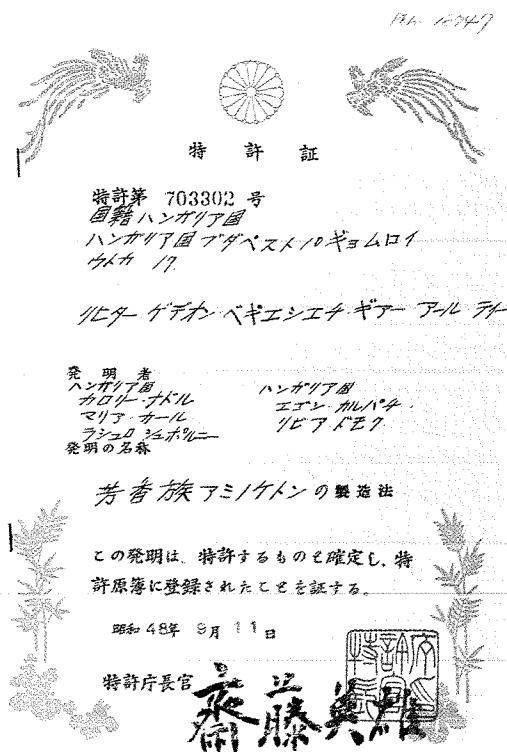 特許証
特許第 703302 号
国籍ハンガリア国
ハンガリア国ブダペスト10ギョムロイ
ウトカ 17
リヒター ゲデオン ベギエシエチ ギアー アール テイ
発明者
ハンガリア国
カロリー・ナドル
マリア・カール
ラシュロ シュポルニー
ハンガリア国
エゴン・カルパチ
リビア・ドモク
発明の名称
芳香族アミノケトンの製造法
この発明は、特許するものと確定し、特
許原簿に登録されたことを証する。
昭和48年 9月 11日
特許庁長官 齋藤英雄